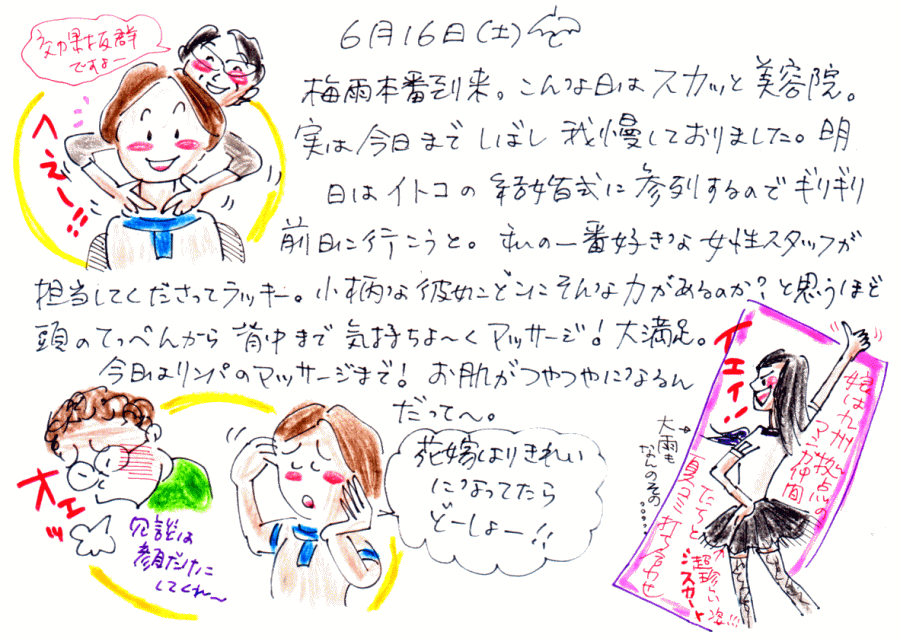 6月16日(土)
効果抜群
ですよー
へぇー!!
梅雨本番到来。こんな日はスカッと美容院。
実は今日までしばし我慢しておりました。明
日はイトコの結婚式に参列するのでギリギリ
前日に行こうと。私の一番好きな女性スタッフが
担当してくださってラッキー。小柄な彼女にどこにそんな力があるのか?と思うほど
頭のてっぺんから背中まで気持ちよ〜くマッサージ!大満足。
今日はリンパのマッサージまで!お肌がつやつやになるん
だって〜。
オエッ
冗談は
顔だけに
してくれ〜
花嫁よりきれい
になってたら
どーしよー!!
イエィ!!
大雨も
なんのその....
娘は九州拠点の
マンガ仲間
たちと
夏コミ打ち合わせ
超珍しい姿!!!
スカート